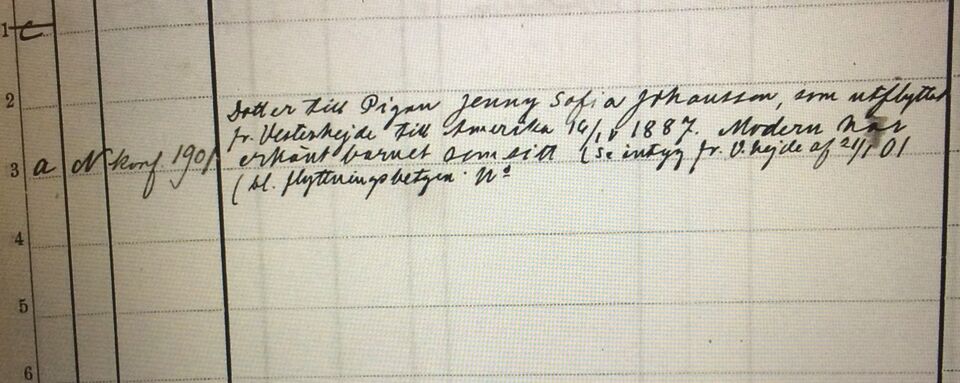 1 c
2
Dotter till Pigan Jenny Sofia Johansson, som utflyttat
fr. Vesterhejde till Amerika 14/ 1887. Modern har
erkänt barnet som sitt (se intyg fr. V.hejde af 21/1 01
3 a N konf. 1901 (bl. flyttningsbetygen. Nº
4
5
6